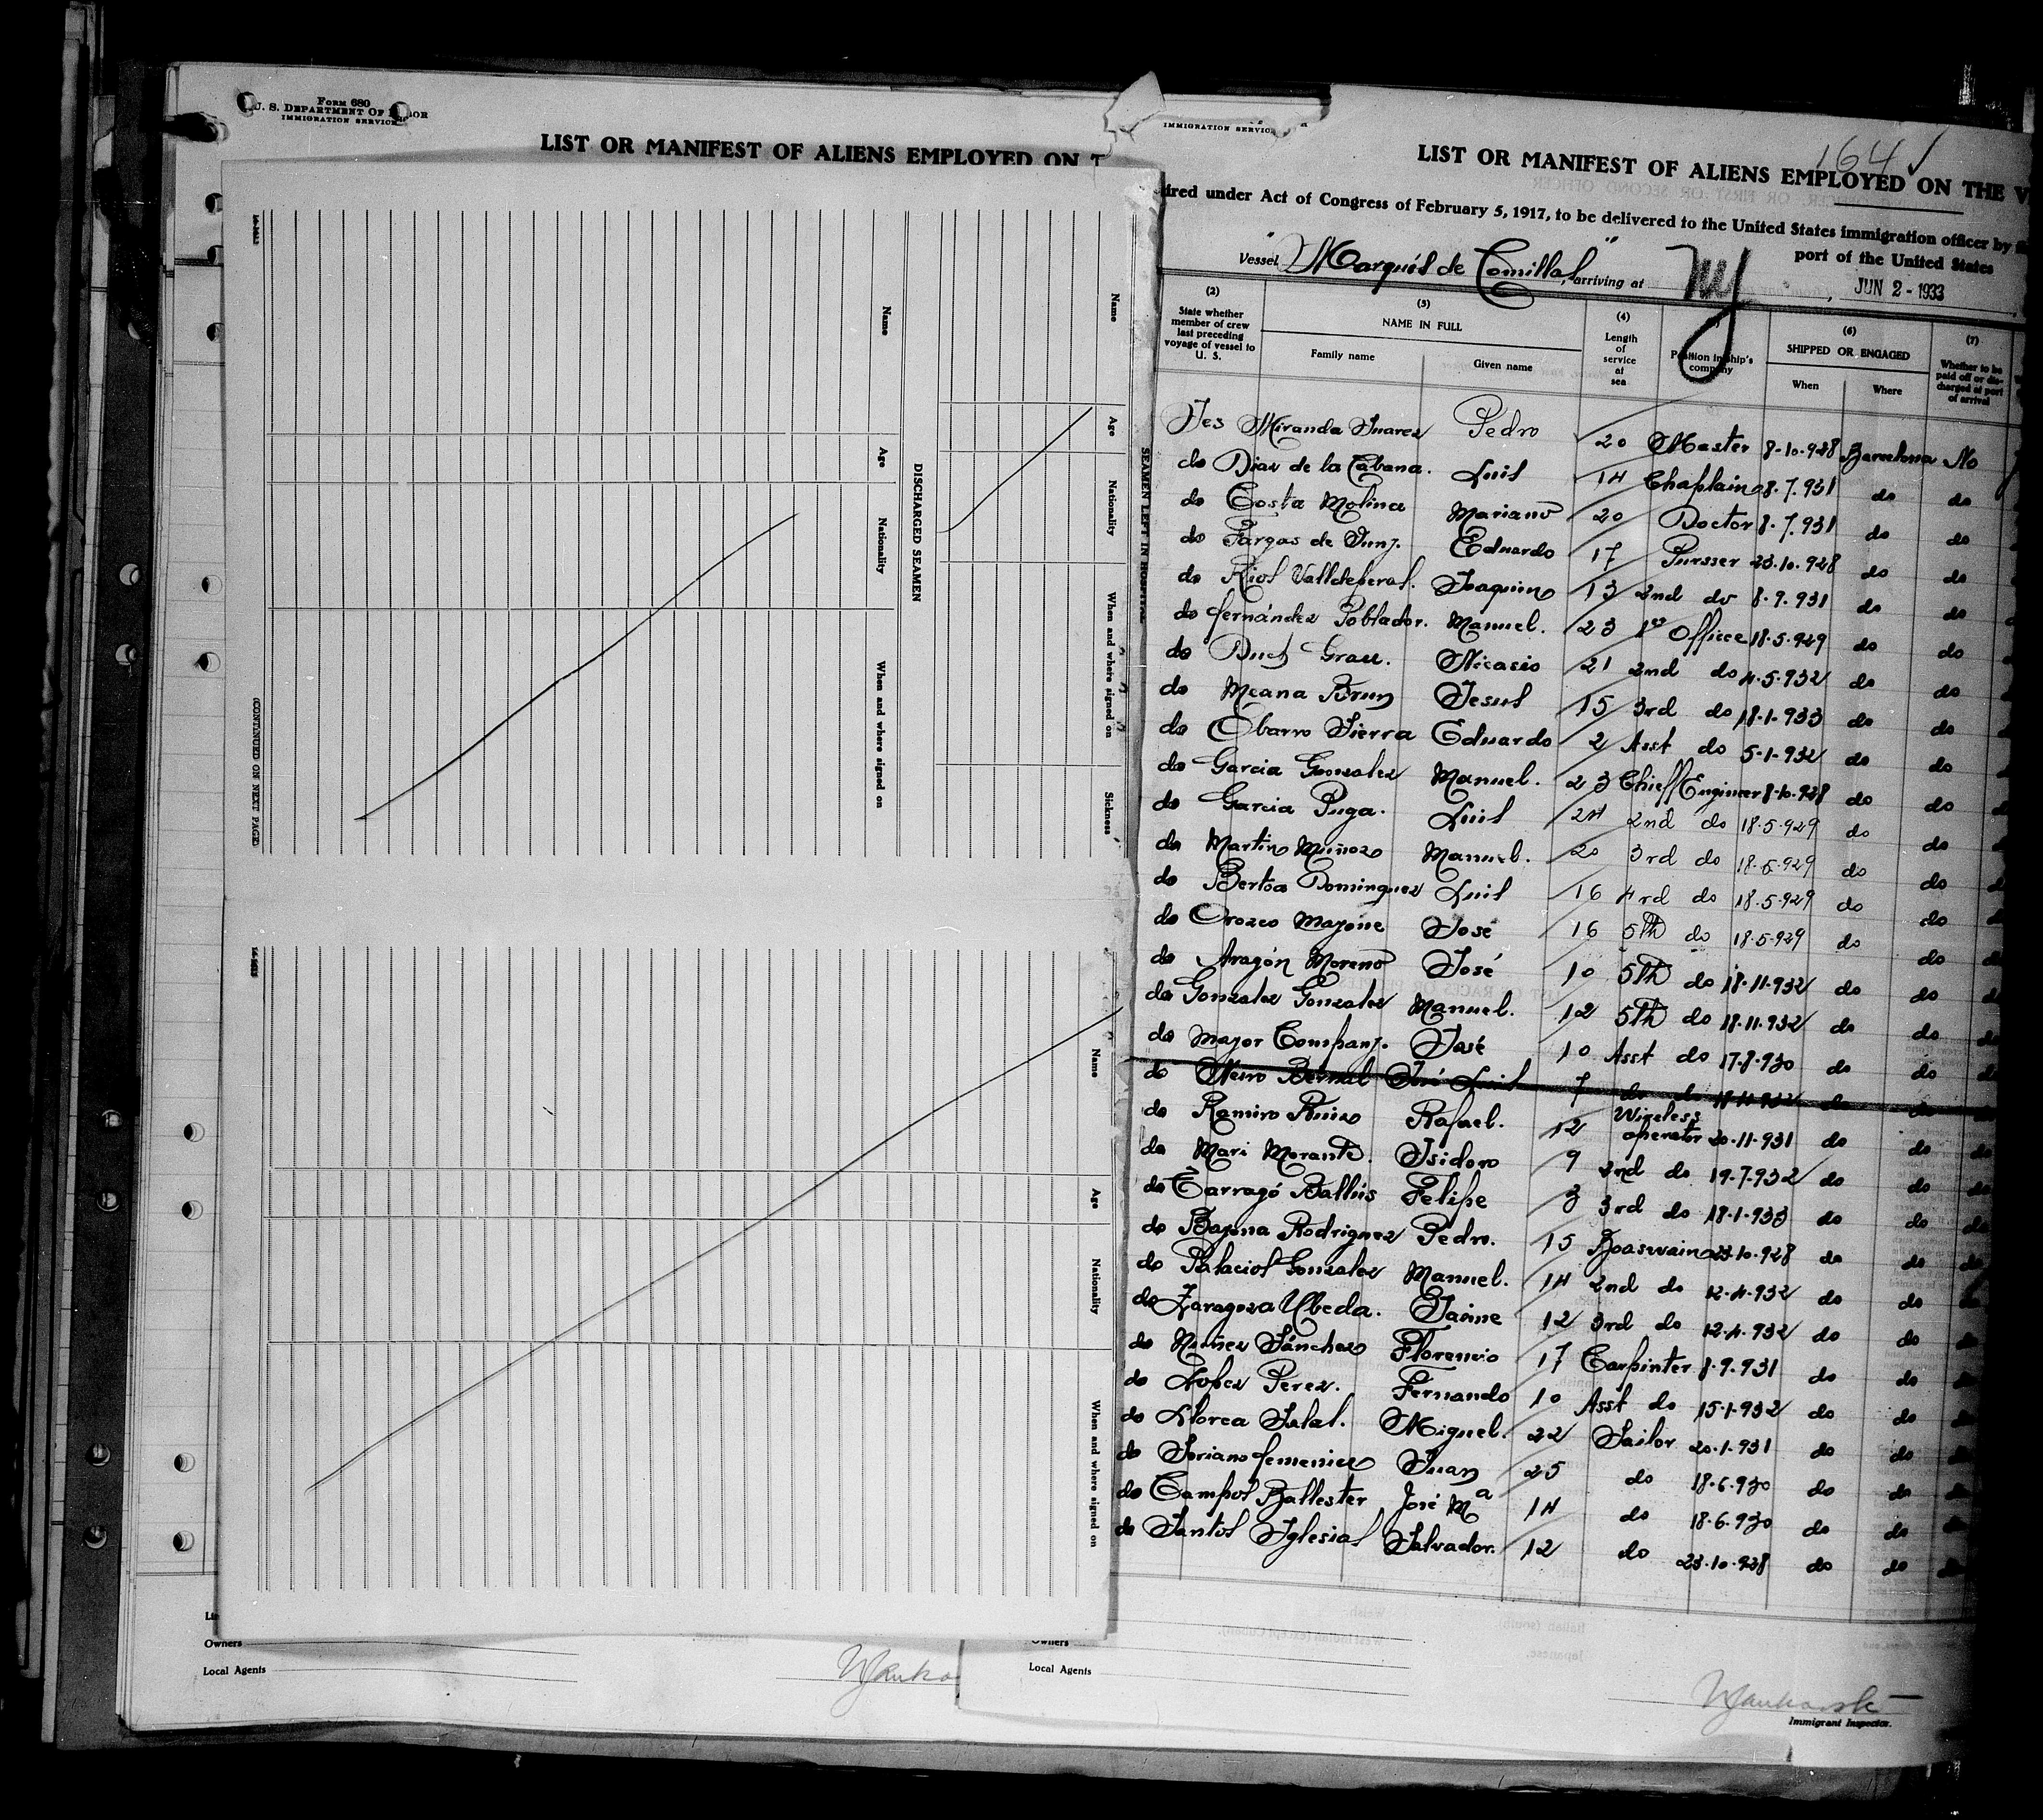 Form 680
U. S. DEPARTMENT OF
IMMIGRATION SERVICE
LIST OR MANIFEST OF ALIENS EMPLOYED ON T
Name
Age
Nationality
When and where signed on
Sickness
SEAMEN LEFT IN HOSPITAL
DISCHARGED SEAMEN
Name
Age
Nationality
When and where signed on
(CONTINUED ON NEXT PAGE)
Name
Age
Nationality
When and where signed on
Owners
Local Agents
IMMIGRATION SERVICE
164 ✓
LIST OR MANIFEST OF ALIENS EMPLOYED ON THE V
ired under Act of Congress of February 5, 1917, to be delivered to the United States immigration officer by
port of the United States
Vessel "Marqués de Comillas", arriving at NY, JUN 2 - 1933
(2) (3) (4) (6) (7)
State whether member of crew last preceding voyage of vessel to U. S.
NAME IN FULL
Family name Given name
Length of service at sea
Position in ship's company
SHIPPED OR ENGAGED
When Where
Whether to be paid off or discharged at port of arrival
Yes Miranda Suarez Pedro 20 Master 8-10-928 Barcelona No
do Diaz de la Cabana. Luis 14 Chaplain 8.7.931 do do
do Costa Molina Mariano 20 Doctor 8.7.931 do do
do Fargas de Eduardo 17 Pursser 23.10.928 do do
do Joaquin 13 2nd do 8.9.931 do do
do fernández Poblador. Manuel. 23 1er Officce 18.5.929 do do
do Duch Grau. Nicasio 21 2nd do 4.5.932 do do
do Meana Brun Jesus 15 3rd do 18.1.933 do do
do Obarro Sierra Eduardo 2 Asst do 5-1-932 do do
do Garcia Gonzalez Manuel. 23 Chieff Engineer 8-10-928 do do
do Garcia Puga. Luis 24 2nd do 18.5.929 do do
do Martin Muñoz Manuel. 20 3rd do 18.5.929 do do
do Bertoa Dominguez Luis 16 4rd do 18.5.929 do do
do Orozco José 16 5th do 18.5.929 do do
do Aragón Moreno José 10 5th do 18.11.932 do do
do Gonzalez Gonzalez Manuel. 12 5th do 18.11.932 do do
do Mayor Company. José 10 Asst do 17.8.930 do do
do Bernal José Luis 7 do do do do
do Ramiro Ruiz Rafael. 12 Wireless operator 20-11-931 do do
do Mari Morante. Isidoro 9 2nd do 19-7-932 do do
do Tarragó Ballús Felipe 3 3rd do 18-1-933 do do
do Bayona Rodriguez Pedro. 15 Boaswain 23-10-928 do do
do Palacios Gonzalez Manuel. 14 2nd do 12-4-932 do do
do Zaragoza Ubeda. Jaime 12 3rd do 12-4-932 do do
do Nuñez Sánchez Florencio 17 Carpinter 8.9.931 do do
do Lopez Perez. Fernando 10 Asst do 15-1-932 do do
do Llorca Miguel. 22 Sailor 20-1-931 do do
do Soriano femenies Juan 25 do 18.6.930 do do
do Campos Ballester José Mª 14 do 18.6.930 do do
do Santos Iglesias Salvador. 12 do 23-10-928 do do
Owners
Local Agents
Immigrant Inspector.